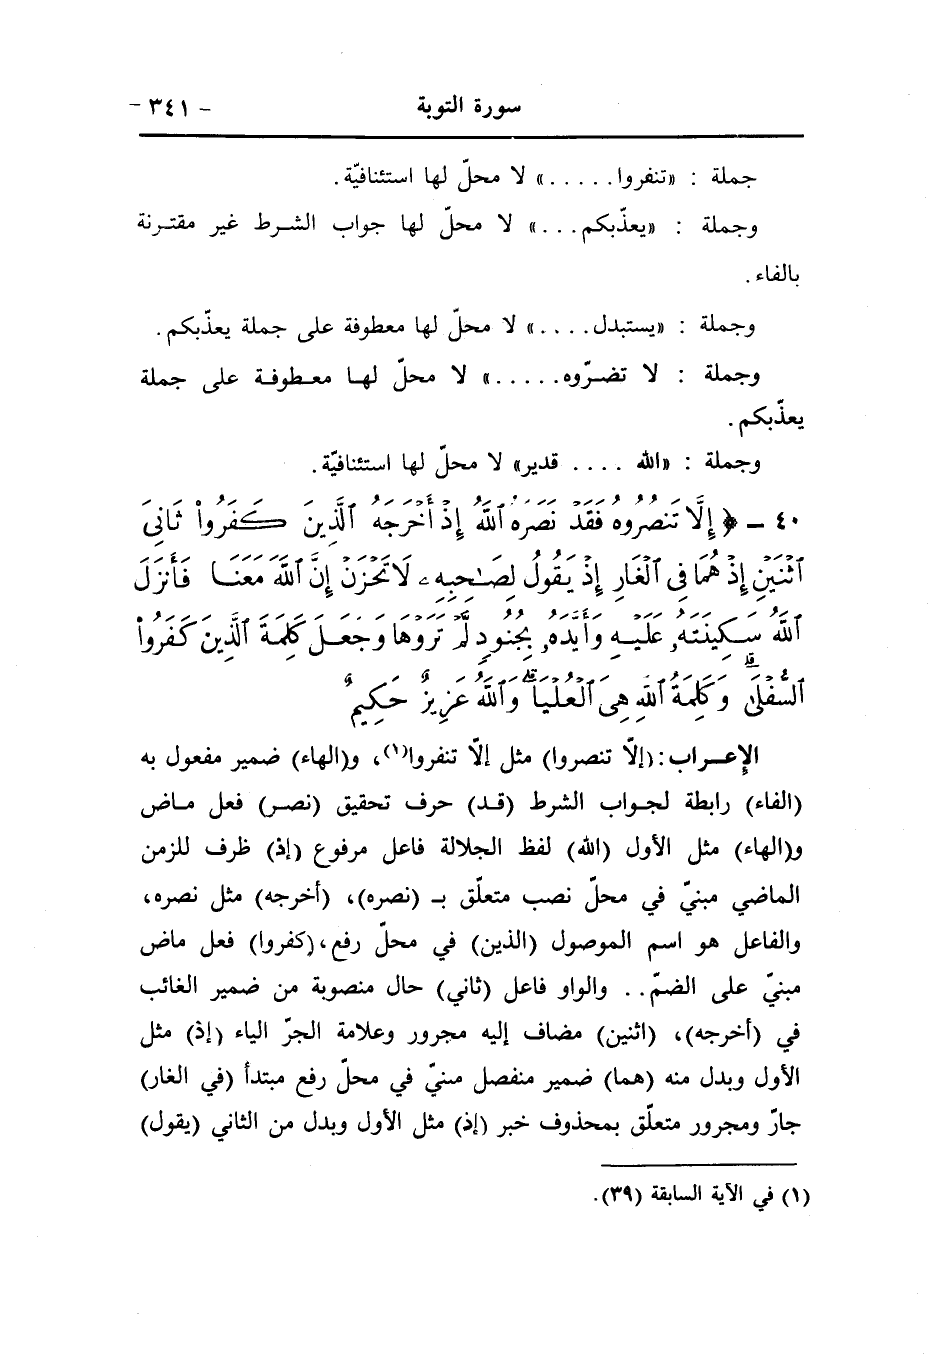 سورة التوبة - ٣٤١ -
جملة : «تنفروا.....» لا محلّ لها استئنافيّة.
وجملة : «يعذّبكم...» لا محلّ لها جواب الشرط غير مقترنة
بالفاء.
وجملة : «يستبدل....» لا محلّ لها معطوفة على جملة يعذّبكم.
وجملة : لا تضرّوه.....» لا محلّ لها معطوفة على جملة
يعذّبكم.
وجملة : «الله .... قدير» لا محلّ لها استئنافيّة.
٤٠ - ﴿ إِلَّا تَنصُرُوهُ فَقَدْ نَصَرَهُ ٱللَّهُ إِذْ أَخْرَجَهُ ٱلَّذِينَ كَفَرُوا۟ ثَانِىَ
ٱثْنَيْنِ إِذْ هُمَا فِى ٱلْغَارِ إِذْ يَقُولُ لِصَـٰحِبِهِۦ لَا تَحْزَنْ إِنَّ ٱللَّهَ مَعَنَا فَأَنزَلَ
ٱللَّهُ سَكِينَتَهُۥ عَلَيْهِ وَأَيَّدَهُۥ بِجُنُودٍ لَّمْ تَرَوْهَا وَجَعَلَ كَلِمَةَ ٱلَّذِينَ كَفَرُوا۟
ٱلسُّفْلَىٰ ۗ وَكَلِمَةُ ٱللَّهِ هِىَ ٱلْعُلْيَا ۗ وَٱللَّهُ عَزِيزٌ حَكِيمٌ
الإعراب: (إلّا تنصروا) مثل إلّا تنفروا(١)، و(الهاء) ضمير مفعول به
(الفاء) رابطة لجواب الشرط (قد) حرف تحقيق (نصر) فعل ماض
و(الهاء) مثل الأول (الله) لفظ الجلالة فاعل مرفوع (إذ) ظرف للزمن
الماضي مبنيّ في محلّ نصب متعلّق بـ (نصره)، (أخرجه) مثل نصره،
والفاعل هو اسم الموصول (الذين) في محلّ رفع، (كفروا) فعل ماض
مبنيّ على الضمّ.. والواو فاعل (ثاني) حال منصوبة من ضمير الغائب
في (أخرجه)، (اثنين) مضاف إليه مجرور وعلامة الجرّ الياء (إذ) مثل
الأول وبدل منه (هما) ضمير منفصل مبنيّ في محلّ رفع مبتدأ (في الغار)
جارّ ومجرور متعلّق بمحذوف خبر (إذ) مثل الأول وبدل من الثاني (يقول)
(١) في الآية السابقة (٣٩).